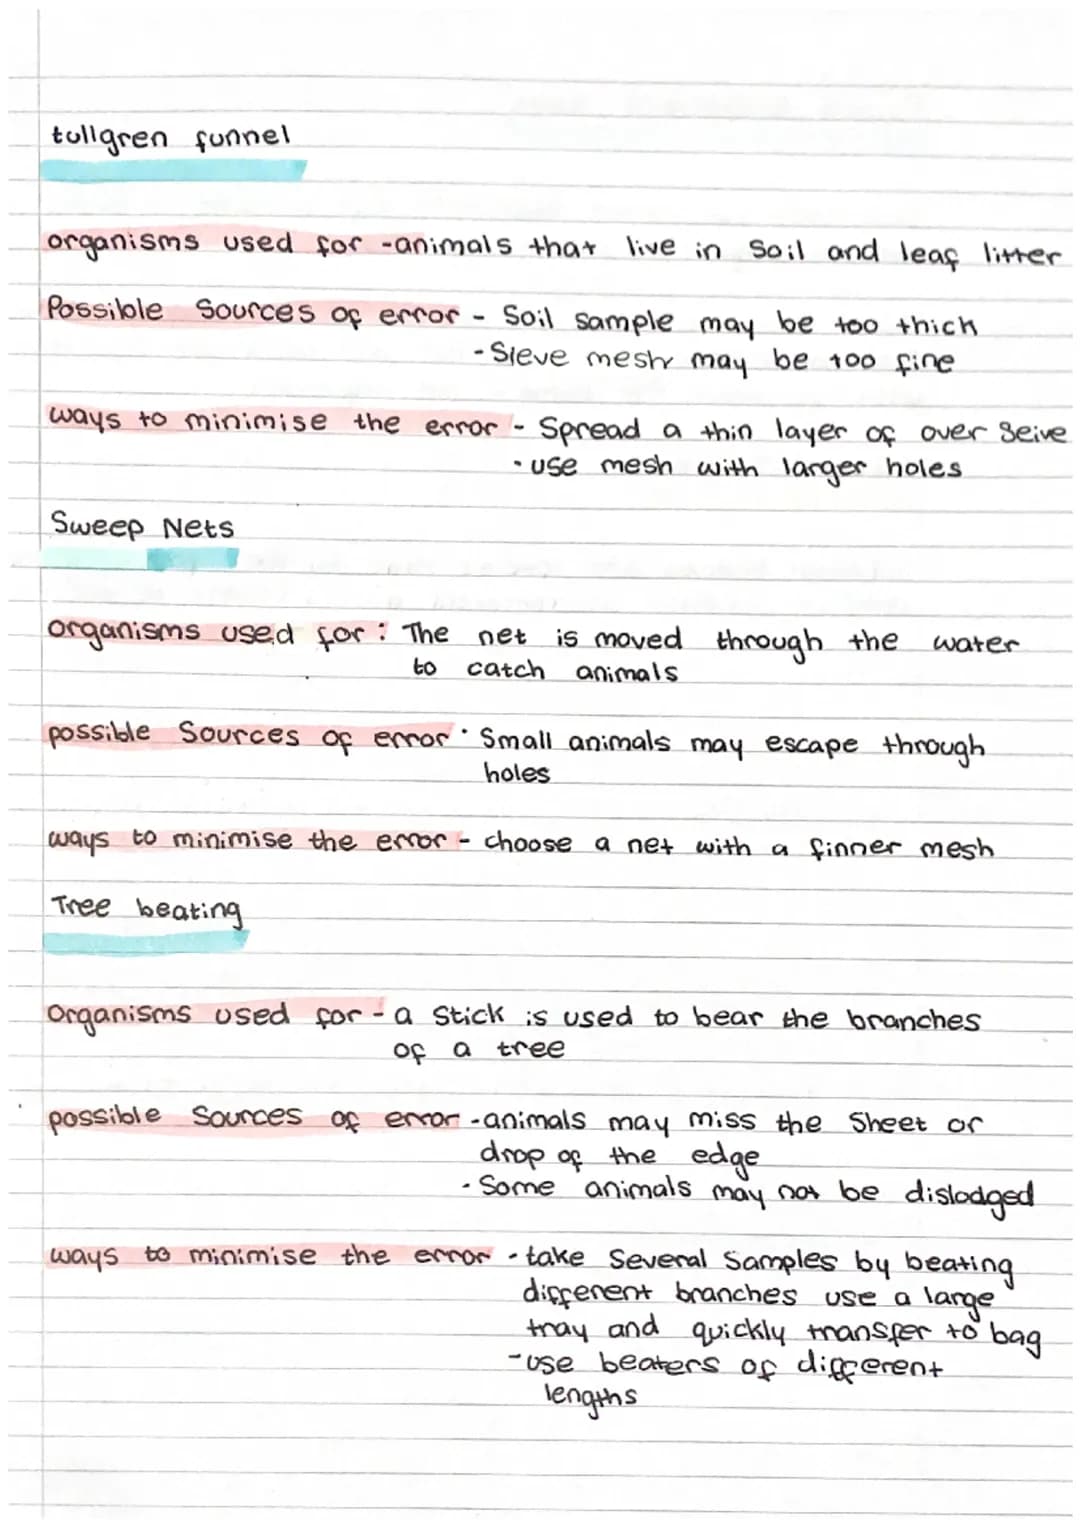 tullgren funnel
organisms used for -animals that live in soil and leaf litter
Possible Sources of error - Soil sample may be too thich
- Sieve mesh may be too fine
ways to minimise the error - Spread a thin layer of over Seive
- use mesh with larger holes
Sweep Nets
organisms used for : The net is moved through the water
to catch animals
possible Sources of error · Small animals may escape through
holes
ways to minimise the error - choose a net with a finner mesh
Tree beating
Organisms used for - a stick is used to bear the branches
of a tree
possible Sources of error -animals may miss the Sheet or
drop of the edge
- Some animals may not be dislodged
ways to minimise the error - take Several Samples by beating
different branches use a large
tray and quickly transfer to bag
- use beaters of different
lengths